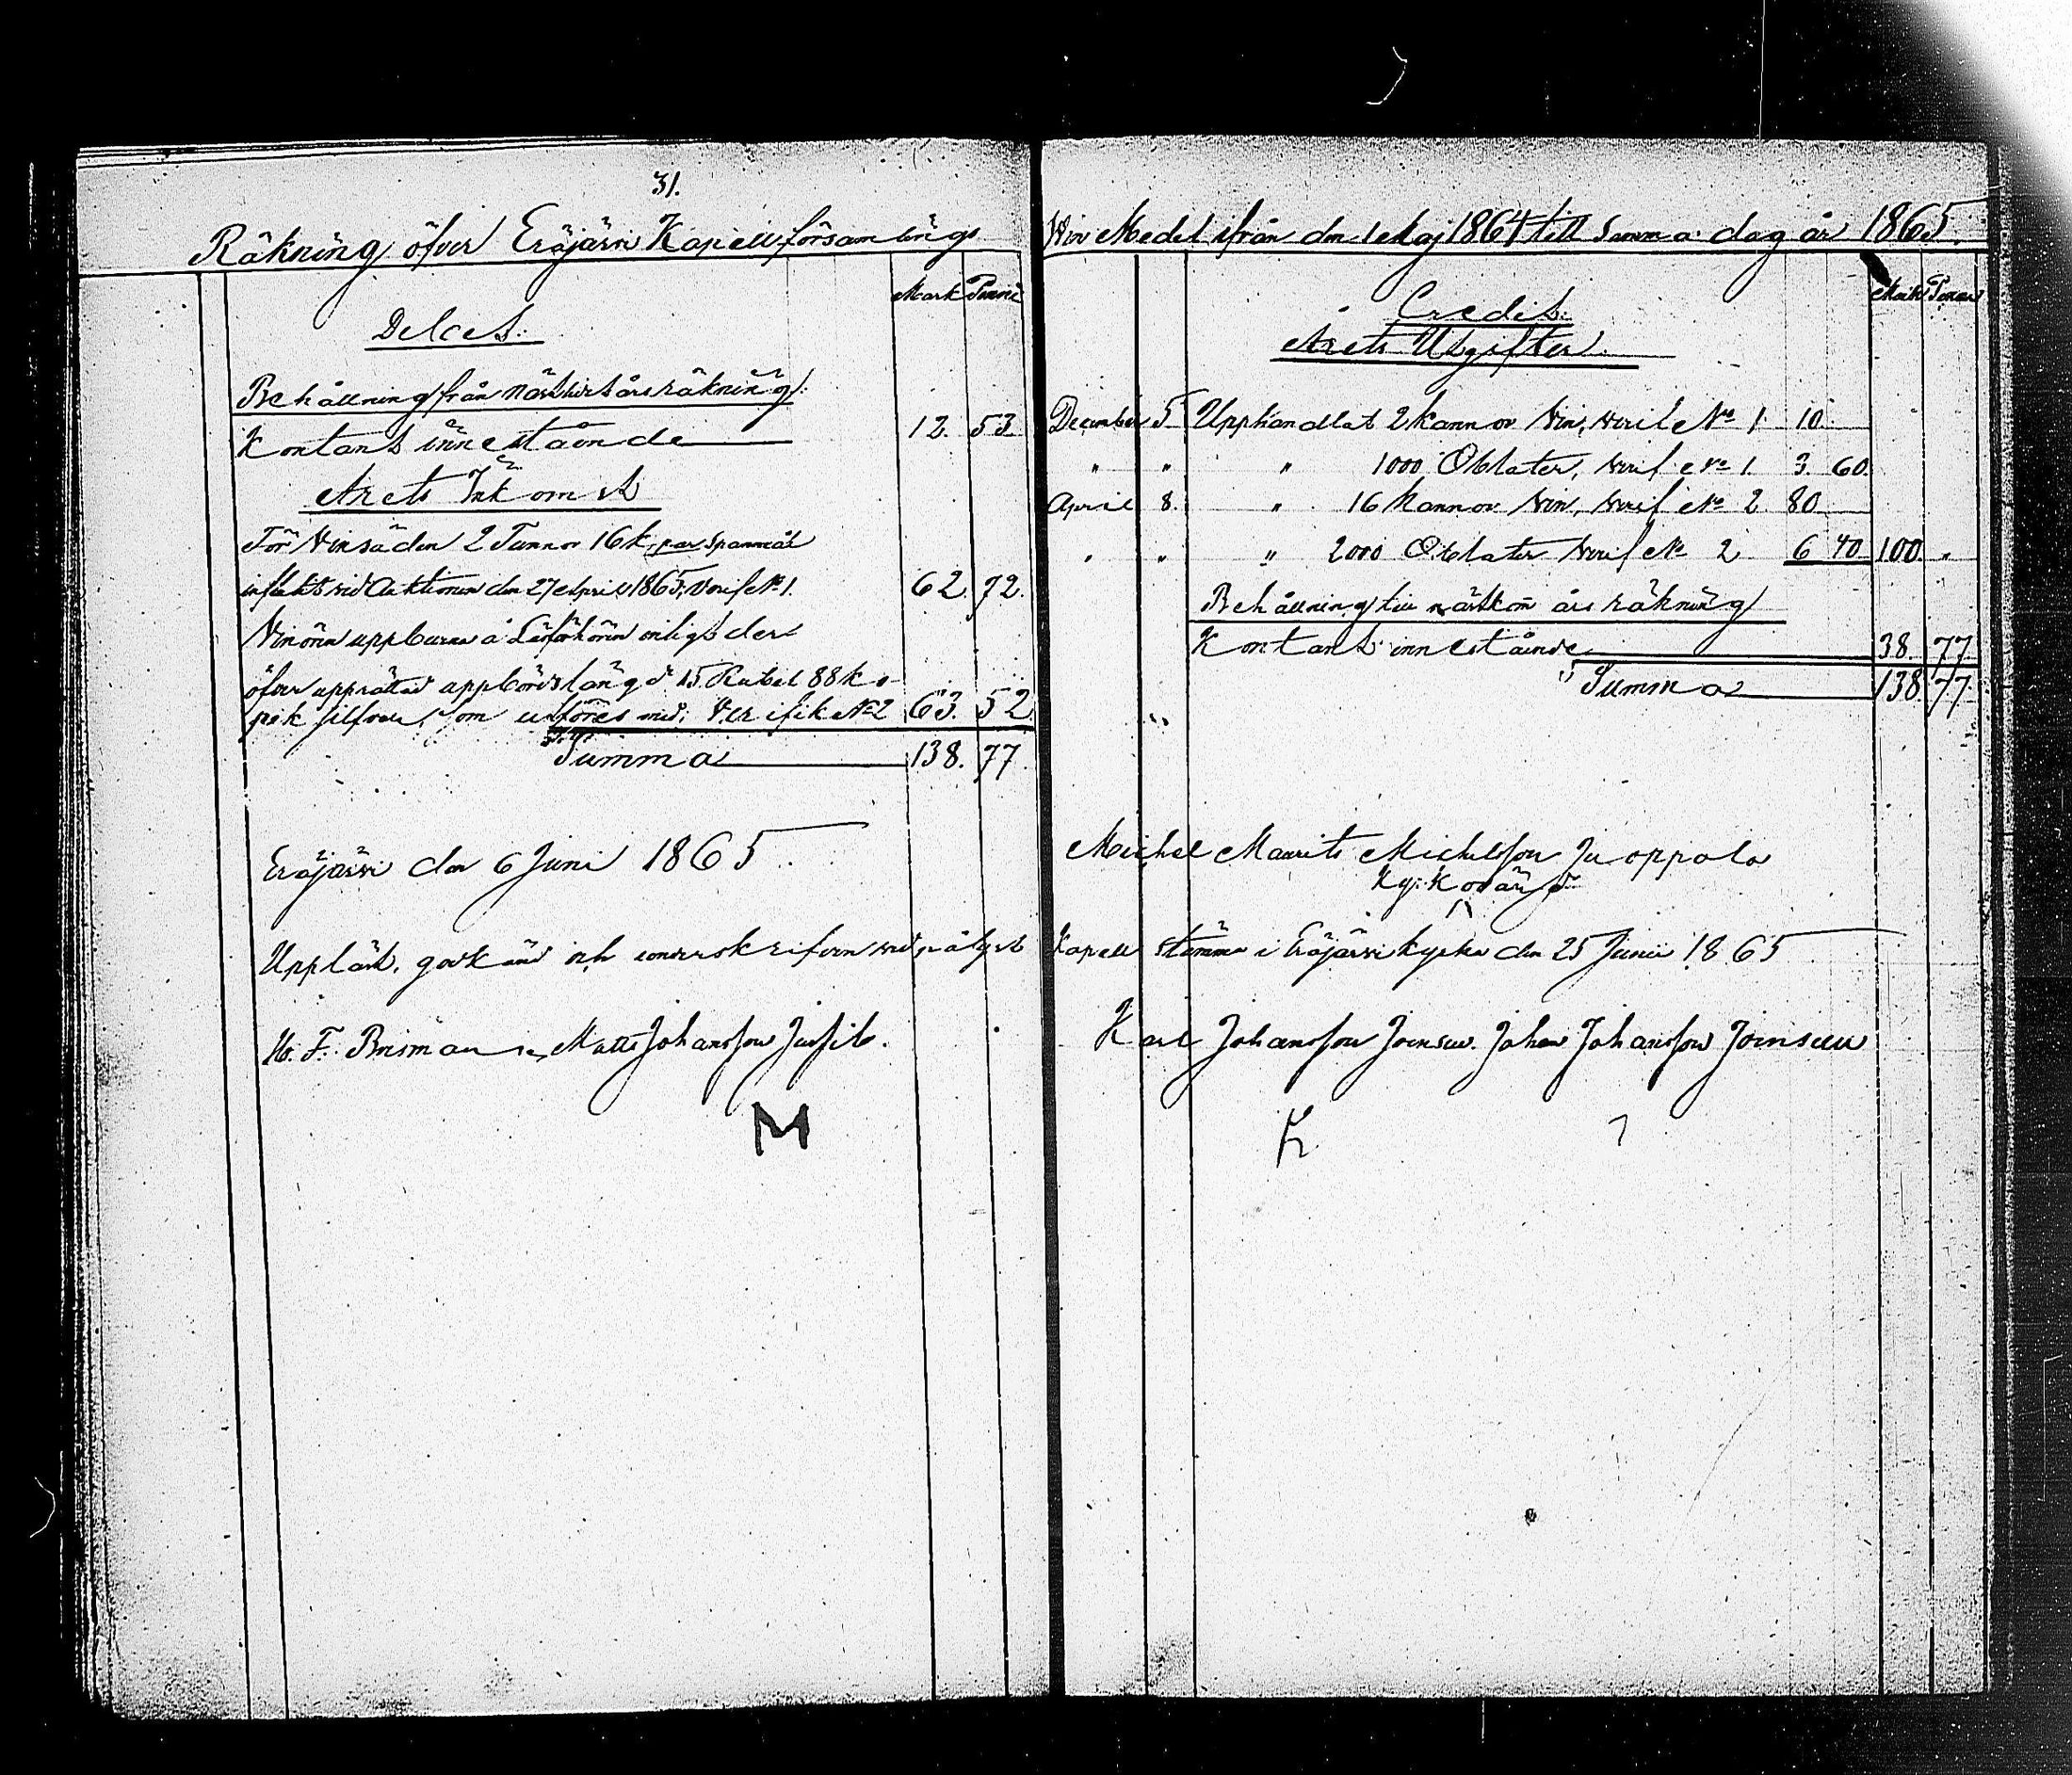 31.
Räkning öfver Eräjärvi Kapellförsamlings
Mark Penni
Debet.
Behållning från näst årsräkning.
Kontant innestående 12. 53
Årets Inkomst
För Vinsäden 2 Tunnor 16 k, par Spanmål
influtit vid Auktionen den 27 April 1865, Verif No 1. 62. 72.
uppburna å enligt der
öfver upprättad uppbördslängd 15 Rubel 88 ko-
pek silfver, som utföres med; Verifik No 2 63. 52
Summa 138. 77
Eräjärvi den 6 Juni 1865
Uppläst, godkänd och underskrifven vid pålyst
Matts Johansson
M
Vin Medel ifrån den 1 Maj 1864 till samma dag år 1865.
Mark Penni
Credit.
Årets Utgifter.
December 5 Upphandlat 2 kannor Vin, Verif No 1 10
" " " 1000 Oblater, Verif No 1. 3. 60.
April 8. " 16 kannor Vin, Verif No 2 80
" " " 2000 Oblater Verif No 2 6 40 100 "
Behållning till nästkom års räkning
Kontant innestående 38. 77
Summa 138. 77
Michel Maurits Michelsson Juoppala
Kyrkovärd
Kapell stämma i Eräjärvi kyrka den 25 Junii 1865
Karl Johansson Johan Johansson
K